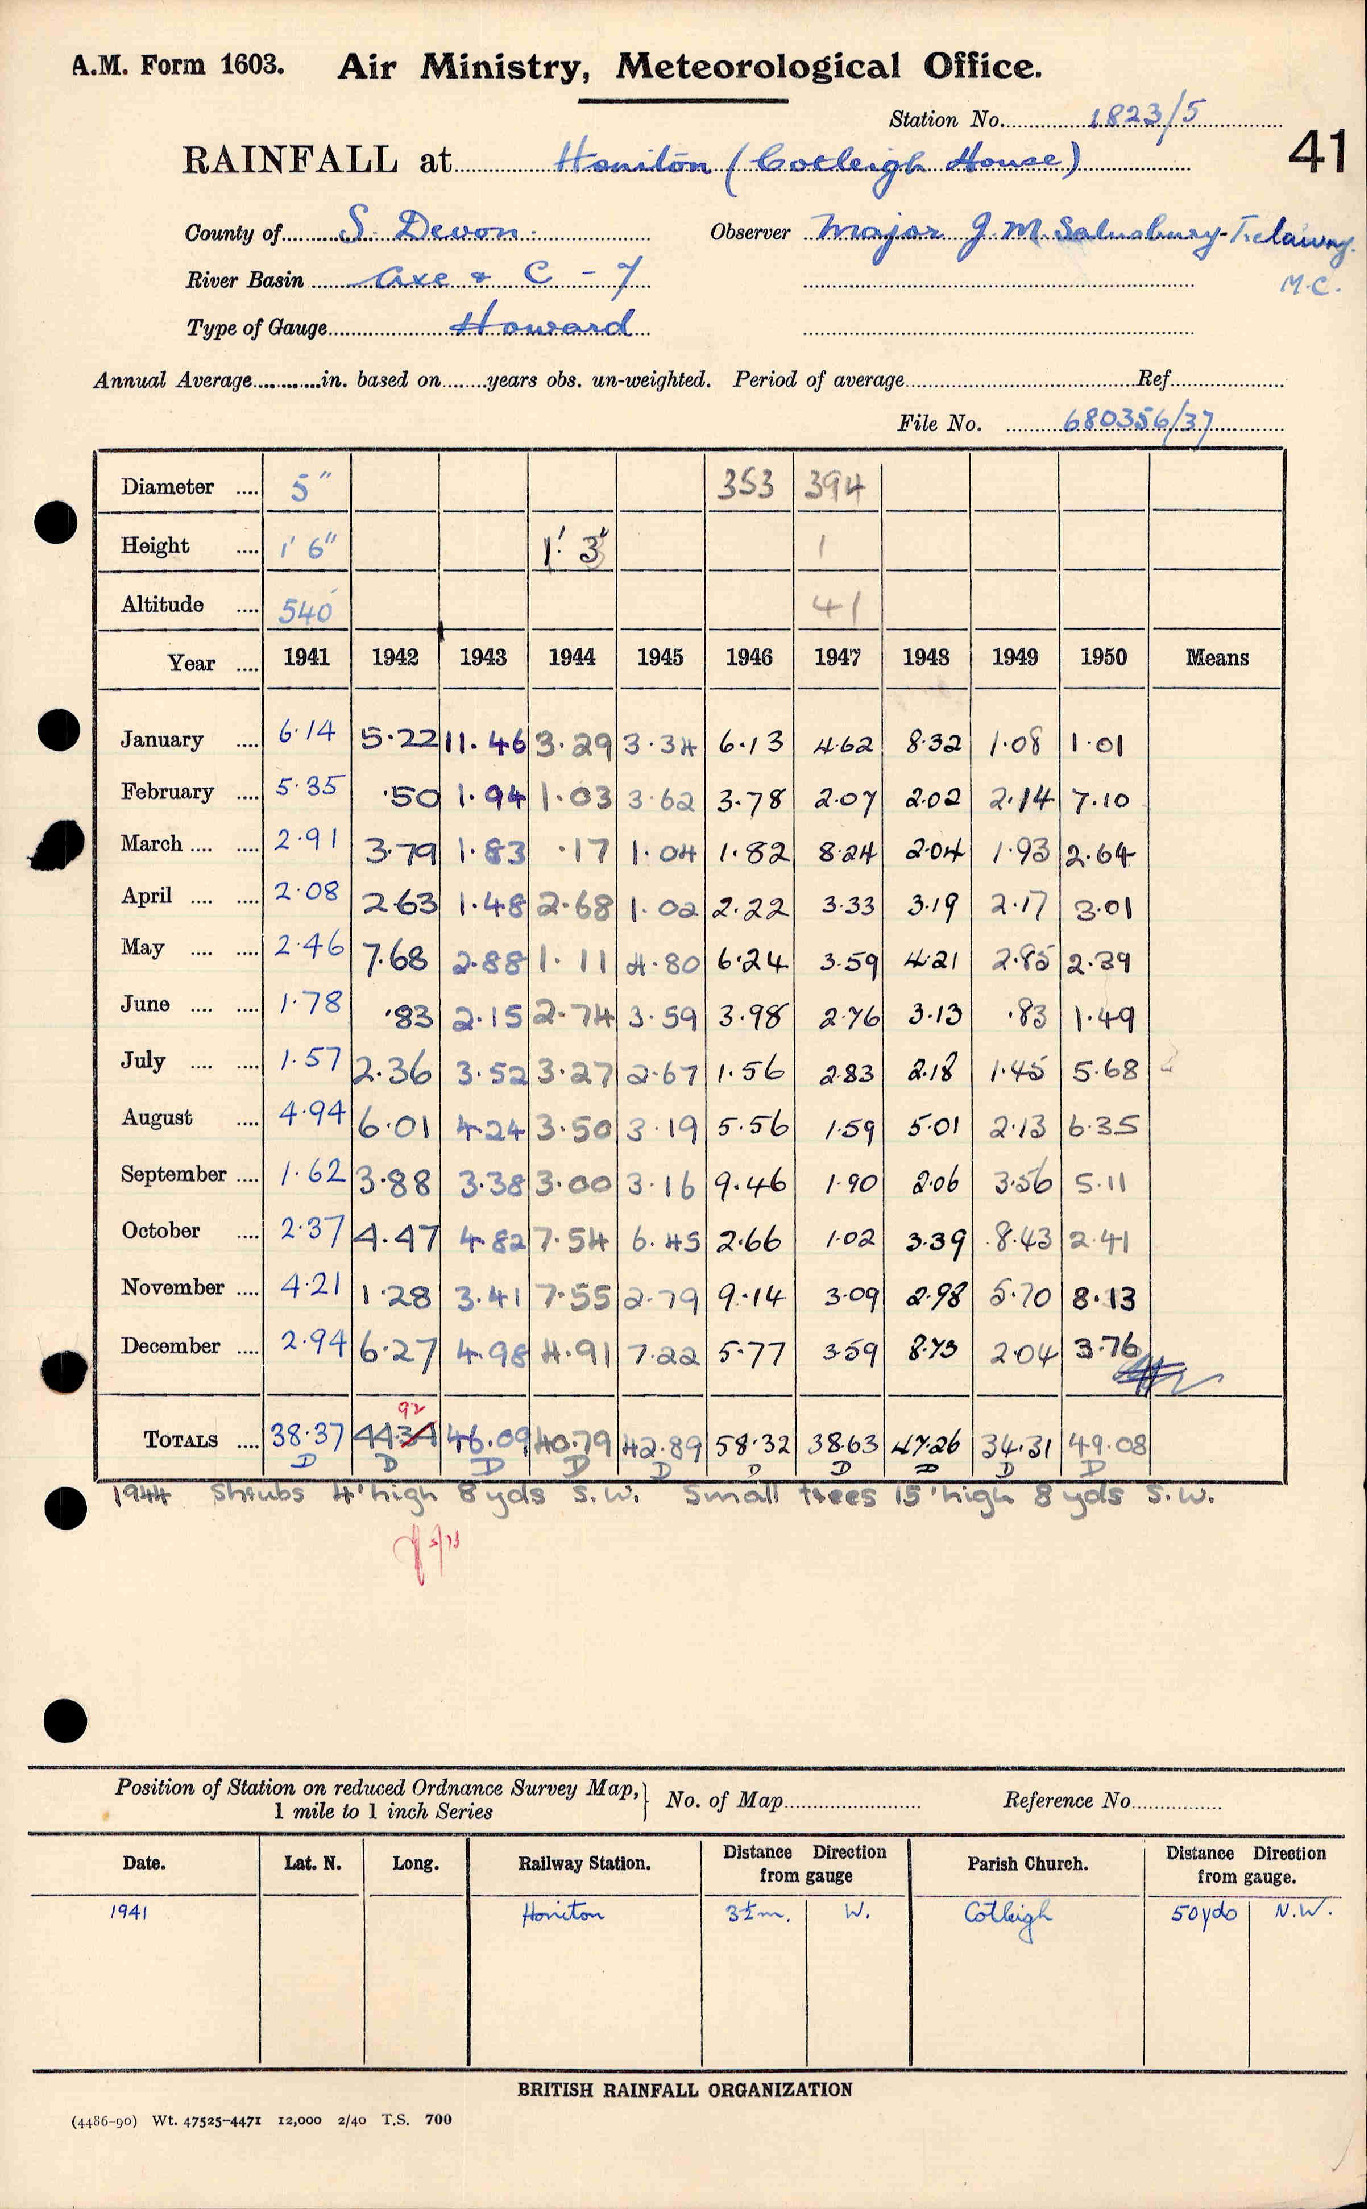 A.M. Form 1603. Air Ministry, Meteorological Office.
Station No. 1823/5
41
RAINFALL at Honiton (Cotleigh House)
County of S. Devon. Observer Major J. M. Salusbury-Trelawny.
River Basin Axe & C - 7 M.C.
Type of Gauge Howard
Annual Average in. based on years obs. un-weighted. Period of average Ref.
File No. 680356/37
Diameter 5" 353 394
Height 1' 6" 1' 3" 1
Altitude 540 41
Year 1941 1942 1943 1944 1945 1946 1947 1948 1949 1950 Means
January 6.14 5.22 11.46 3.29 3.34 6.13 4.62 8.32 1.08 1.01
February 5.35 .50 1.94 1.03 3.62 3.78 2.07 2.02 2.14 7.10
March 2.91 3.79 1.83 .17 1.04 1.82 8.24 2.04 1.93 2.64
April 2.08 2.63 1.48 2.68 1.02 2.22 3.33 3.19 2.17 3.01
May 2.46 7.68 2.88 1.11 4.80 6.24 3.59 4.21 2.85 2.39
June 1.78 .83 2.15 2.74 3.59 3.98 2.76 3.13 .83 1.49
July 1.57 2.36 3.52 3.27 2.67 1.56 2.83 2.18 1.45 5.68
August 4.94 6.01 4.24 3.50 3.19 5.56 1.59 5.01 2.13 6.35
September 1.62 3.88 3.38 3.00 3.16 9.46 1.90 2.06 3.56 5.11
October 2.37 4.47 4.82 7.54 6.45 2.66 1.02 3.39 8.43 2.41
November 4.21 1.28 3.41 7.55 2.79 9.14 3.09 2.98 5.70 8.13
December 2.94 6.27 4.98 4.91 7.22 5.77 3.59 8.73 2.04 3.76
92
TOTALS 38.37 44.34 46.09 40.79 42.89 58.32 38.63 47.26 34.31 49.08
D D D D D D D D D D
1944 Shrubs 4' high 8 yds S.W. Small trees 15' high 8 yds S.W.
Position of Station on reduced Ordnance Survey Map, No. of Map Reference No.
1 mile to 1 inch Series
Date. Lat. N. Long. Railway Station. Distance Direction from gauge Parish Church. Distance Direction from gauge.
1941 Honiton 3½m. W. Cotleigh 50yds N.W.
BRITISH RAINFALL ORGANIZATION
(4486-90) Wt. 47525-4471 12,000 2/40 T.S. 700